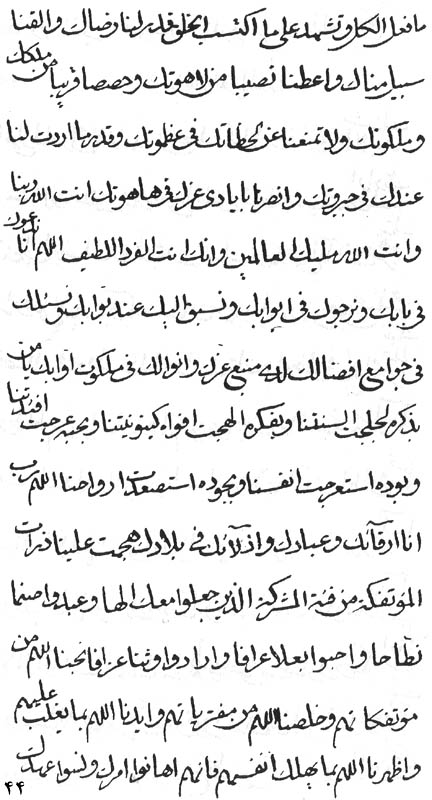 ما فعل الكل و تشهد على ما اكتسب الخلق قدر لنا رضاك و القنا
سبيل مناك و اعطنا نصيبا من لاهوتك و حصصا قريبا من ملكك
و ملكوتك و لا تمنعنا عن لحظاتك فى عظموتك و قدر ما اردت لنا
عندك فى جبروتك و انصرنا بايادى عزك فى هاهوتك انت الله ربنا
و انت الله مليك العالمين و انك انت الفرد اللطيف اللهم انا ندعوك
فى بابك و نرجوك فى ابوابك و نسبق اليك عند نوابك و نسئلك
فى جوامع افضالك لدى منبع عزك و انوالك فى ملكوت اوابك يا من
بذكره لجلجت السنتنا و بفكره الهجت افواه كينونيتنا و بحبه عرجت افئدتنا
و بوده استعرجت انفسنا و بجوده استصعدت ارواحنا اللهم رب
انا ارقآئك و عبادك و اذلآئك فى بلادك هجمت علينا ذرات
المؤتفكة من فئة المشركة الذين جعلوا معك الها و عبدوا صنما
نطاحا و احبوا بعلا عرافا و ارادوا وثنا عزافا نجنا اللهم من
مؤتفكاتهم و خلصنا اللهم من مفترياتهم و ايدنا اللهم بما يغلب عليهم
و اظهرنا اللهم بما يهلك انفسهم فانهم اهانوا امرك و نسوا عهدك
٤٤